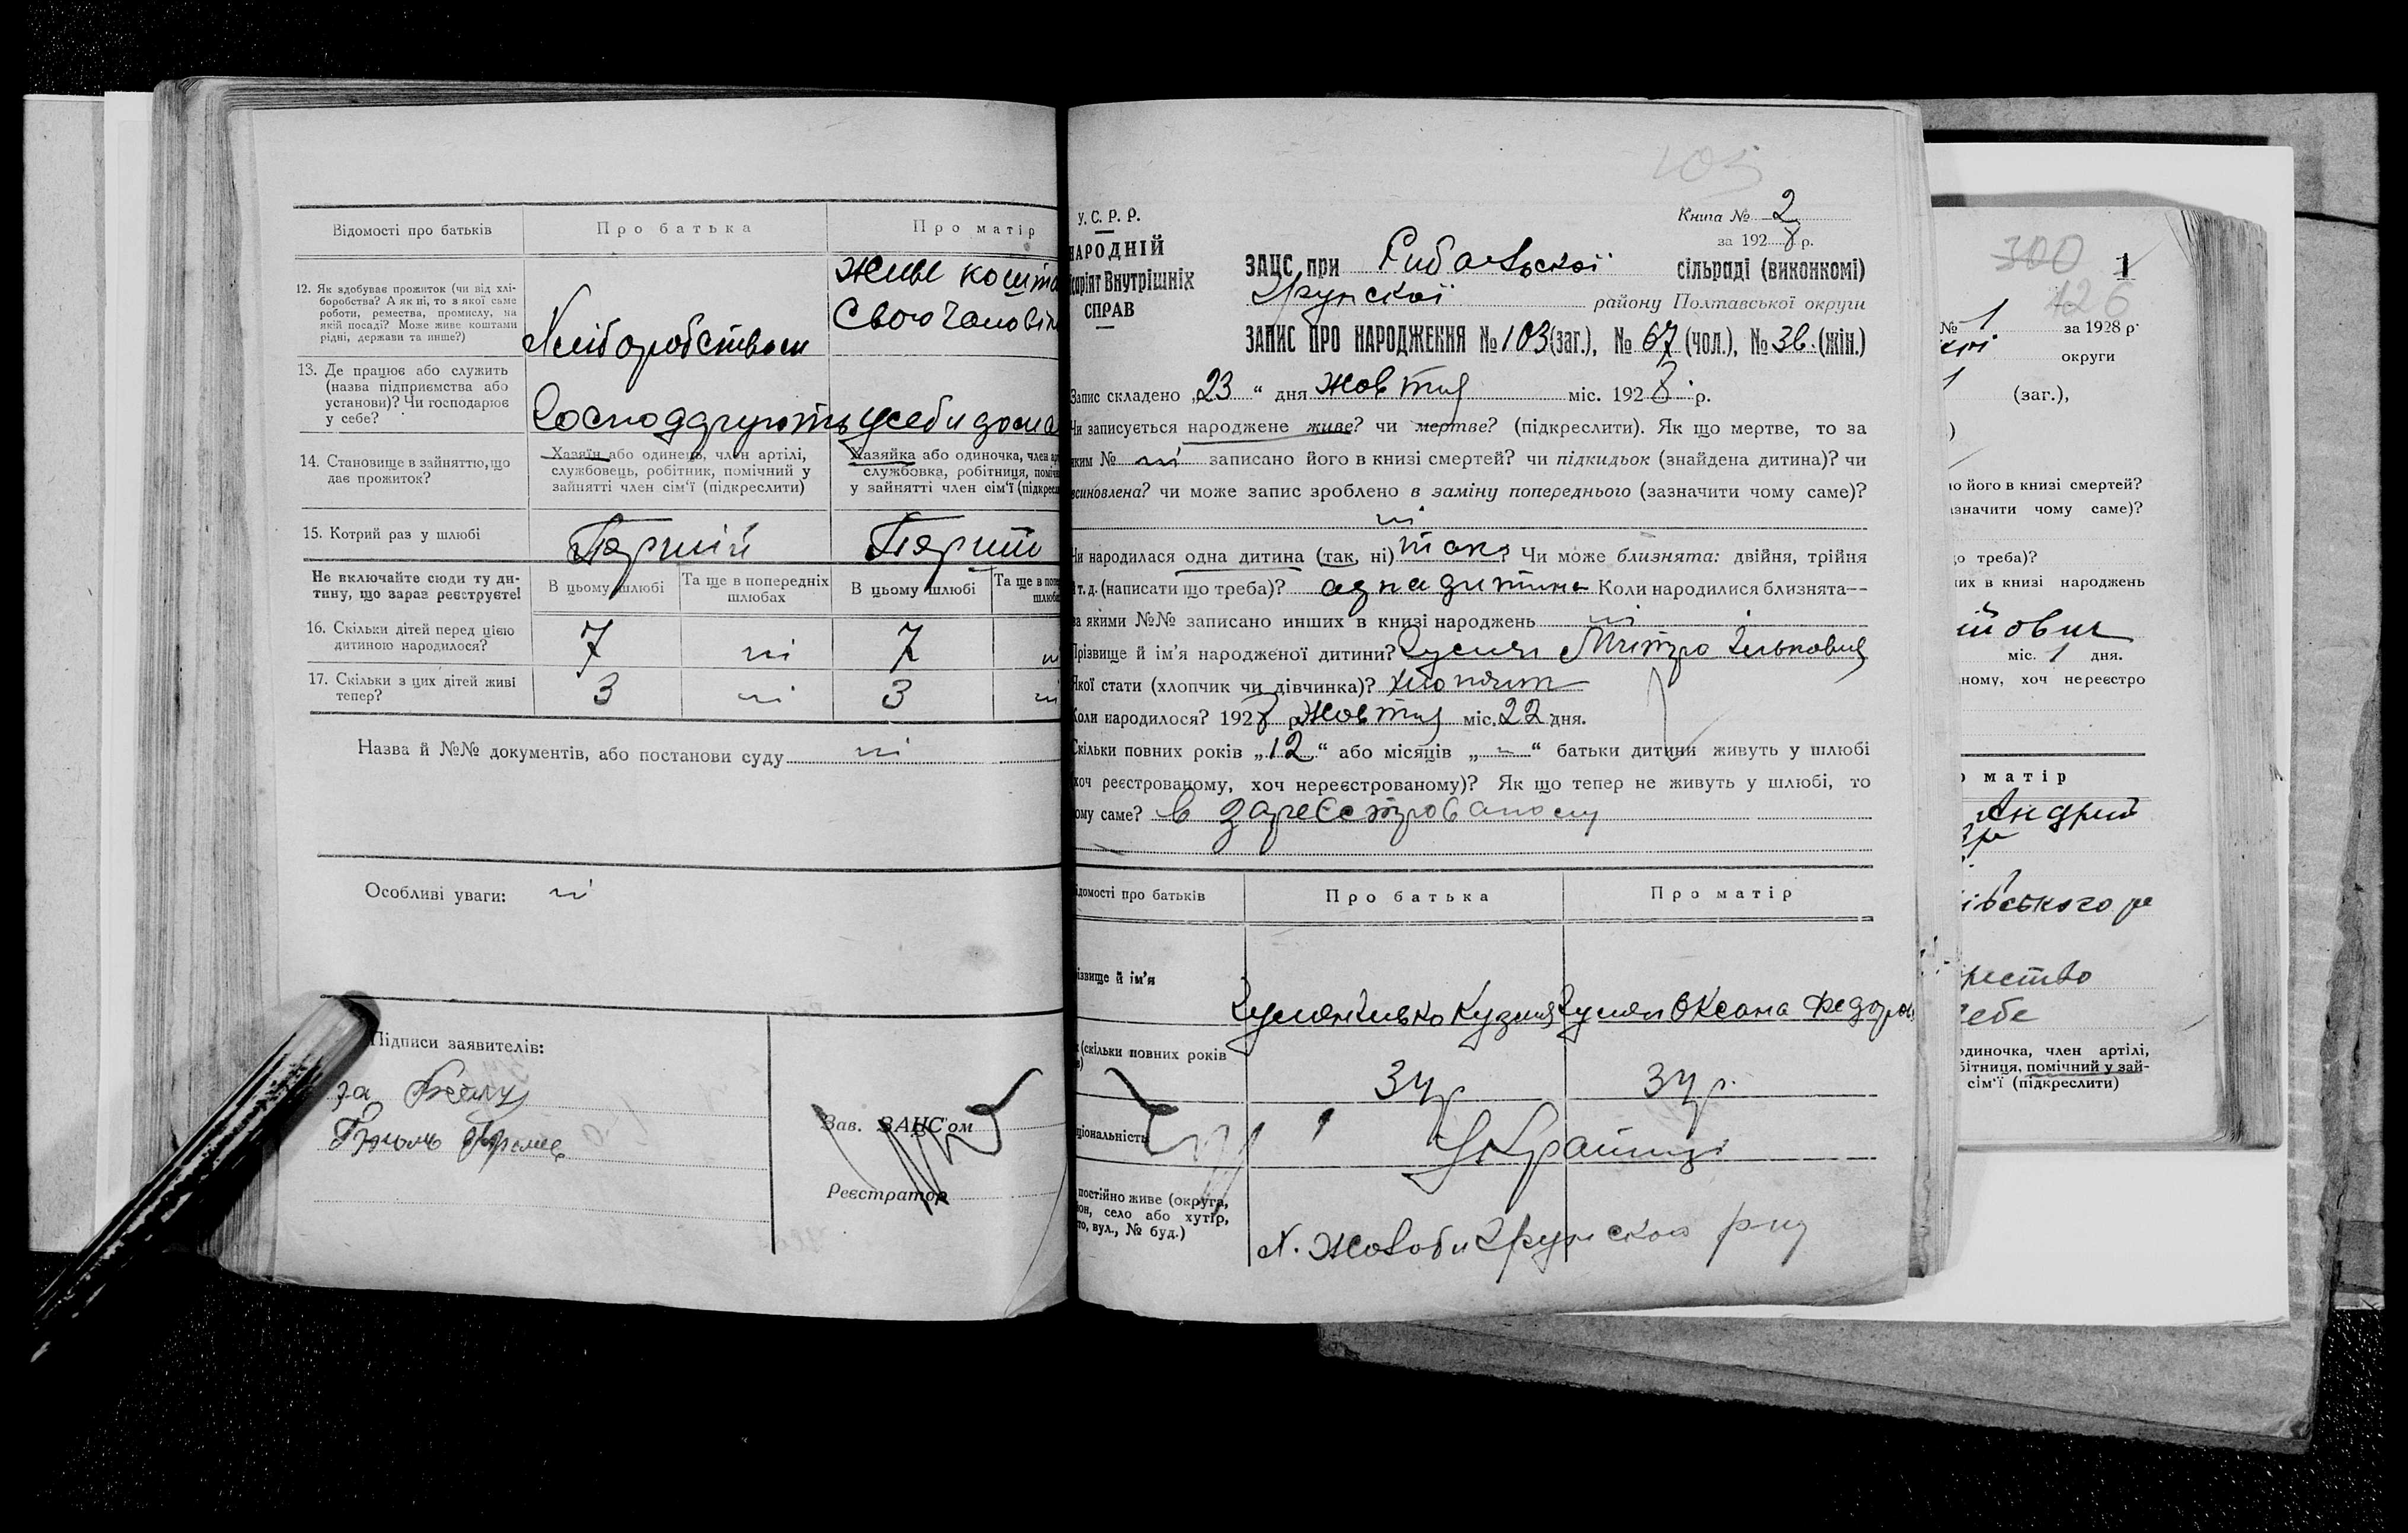 Відомості про батьків
Про батька
Про матір
12. Як здобуває прожиток (чи від хлі-
боробства? А як ні, то з якої саме
роботи, ремества, промислу, на
якій посаді? Може живе коштами
рідні, держави та инше?)
Хліборобством
Живе кошта
свого чоловік
13. Де працює або служить
(назва підприємства або
установи)? Чи господарює
у себе?
14. Становище в зайняттю, що
дає прожиток?
Хазяїн або одинець, член артілі,
службовець, робітник, помічний у
зайнятті член сім'ї (підкреслити)
Хазяйка або одиночка, член ар
службовка, робітниця, поміч
у зайнятті член сім'ї (підкресл
15. Котрий раз у шлюбі
Перший
Перший
Не включайте сюди ту ди-
тину, що зараз реєструєте!
В цьому шлюбі
Та ще в попередніх
шлюбах
В цьому шлюбі
Та ще в попе
шлюба
16. Скільки дітей перед цією
дитиною народилося?
7
ні
7
17. Скільки з цих дітей живі
тепер?
3
ні
3
Назва й №№ документів, або постанови суду ні
Особливі уваги: ні
Підписи заявителів:
за
Зав. ЗАЦС'ом
Реєстратор
103
У. С. Р. Р.
НАРОДНІЙ
сарiят Внутрішніх
СПРАВ
Книга № 2
за 1928 р.
ЗАЦС при Рибальскої сільраді (виконкомі)
Грунскої району Полтавської округи
ЗАПИС ПРО НАРОДЖЕННЯ № 103 (заг.), № 67 (чол.), № 36. (жін.)
Запис складено „23 “ дня Жовтня міс. 1928 р.
Чи записується народжене живе? чи мертве? (підкреслити). Як що мертве, то за
яким № ні записано його в книзі смертей? чи підкидьок (знайдена дитина)? чи
всиновлена? чи може запис зроблено в заміну попереднього (зазначити чому саме)?
ні
Чи народилася одна дитина (так, ні) так? Чи може близнята: двійня, трійня
т. д. (написати що треба)? одна дитина Коли народилися близнята—
за якими №№ записано инших в книзі народжень ні
Прізвище й ім'я народженої дитини? Митро Ількович
Якої стати (хлопчик чи дівчинка)?
Коли народилось? 1928 р. Жовтня міс. 22 дня.
Скільки повних років „12“ або місяців „ “ батьки дитини живуть у шлюбі
(хоч реєстрованому, хоч нереєстрованому)? Як що тепер не живуть у шлюбі, то
чому саме? в зареєстрованому
ідомості про батьків
Про батька
Про матір
ізвище й ім'я
Ілько Кузмич
Оксана Федоров
(скільки повних років
34 р
34 р.
ціональність
Українці
постійно живе (округа,
он, село або хутір,
то, вул., № буд.)
х. Жолоби Грунского р-ну
300
1
126
№ 1 за 1928 р.
округи
(заг.),
ло його в книзі смертей?
азначити чому саме)?
о треба)?
их в книзі народжень
міс. 1 дня.
ному, хоч нереєстро
о матір
Андрій
івського р
себе
одиночка, член артілі,
бітниця, помічний у зай-
сім'ї (підкреслити)